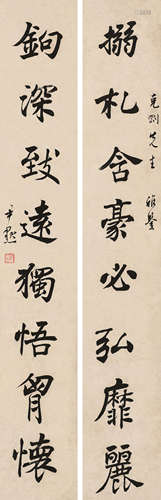 搦札含豪必弘靡麗
克剛先生雅鑒
鉤深致遠獨悟胷懷
尹默